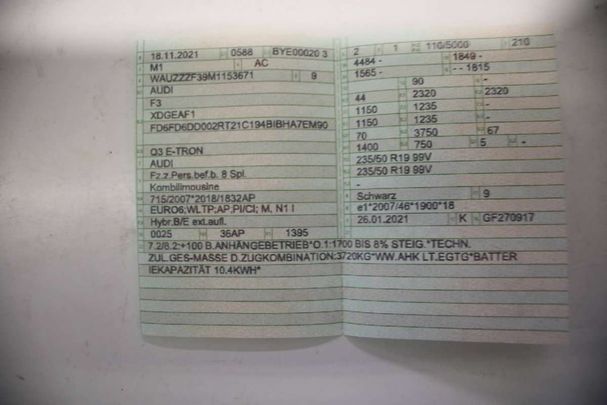 18.11.2021 0588 BYE00020 3
M1 AC
WAUZZZF39M1153671 9
AUDI
F3
XDGEAF1
FD6FD6DD002RT21C194BIBHA7EM90
Q3 E-TRON
AUDI
Fz.z.Pers.bef.b. 8 Spl.
Kombilimousine
715/2007*2018/1832AP
EURO6;WLTP;AP;PI/CI; M, N1 I
Hybr.B/E ext.aufl.
0025 36AP 1395
2 1 110/5000 210
4484 - 1849 -
1565 - - - 1815
90 -
44 2320 2320
1150 1235 -
1150 1235 -
70 3750 67
1400 750 5 -
235/50 R19 99V
235/50 R19 99V
-
Schwarz 9
e1*2007/46*1900*18
26.01.2021 K GF270917
7.2/8.2:+100 B.ANHÄNGEBETRIEB*O.1:1700 BIS 8% STEIG.*TECHN.
ZUL.GES-MASSE D.ZUGKOMBINATION:3720KG*WW.AHK LT.EGTG*BATTER
IEKAPAZITÄT 10.4KWH*